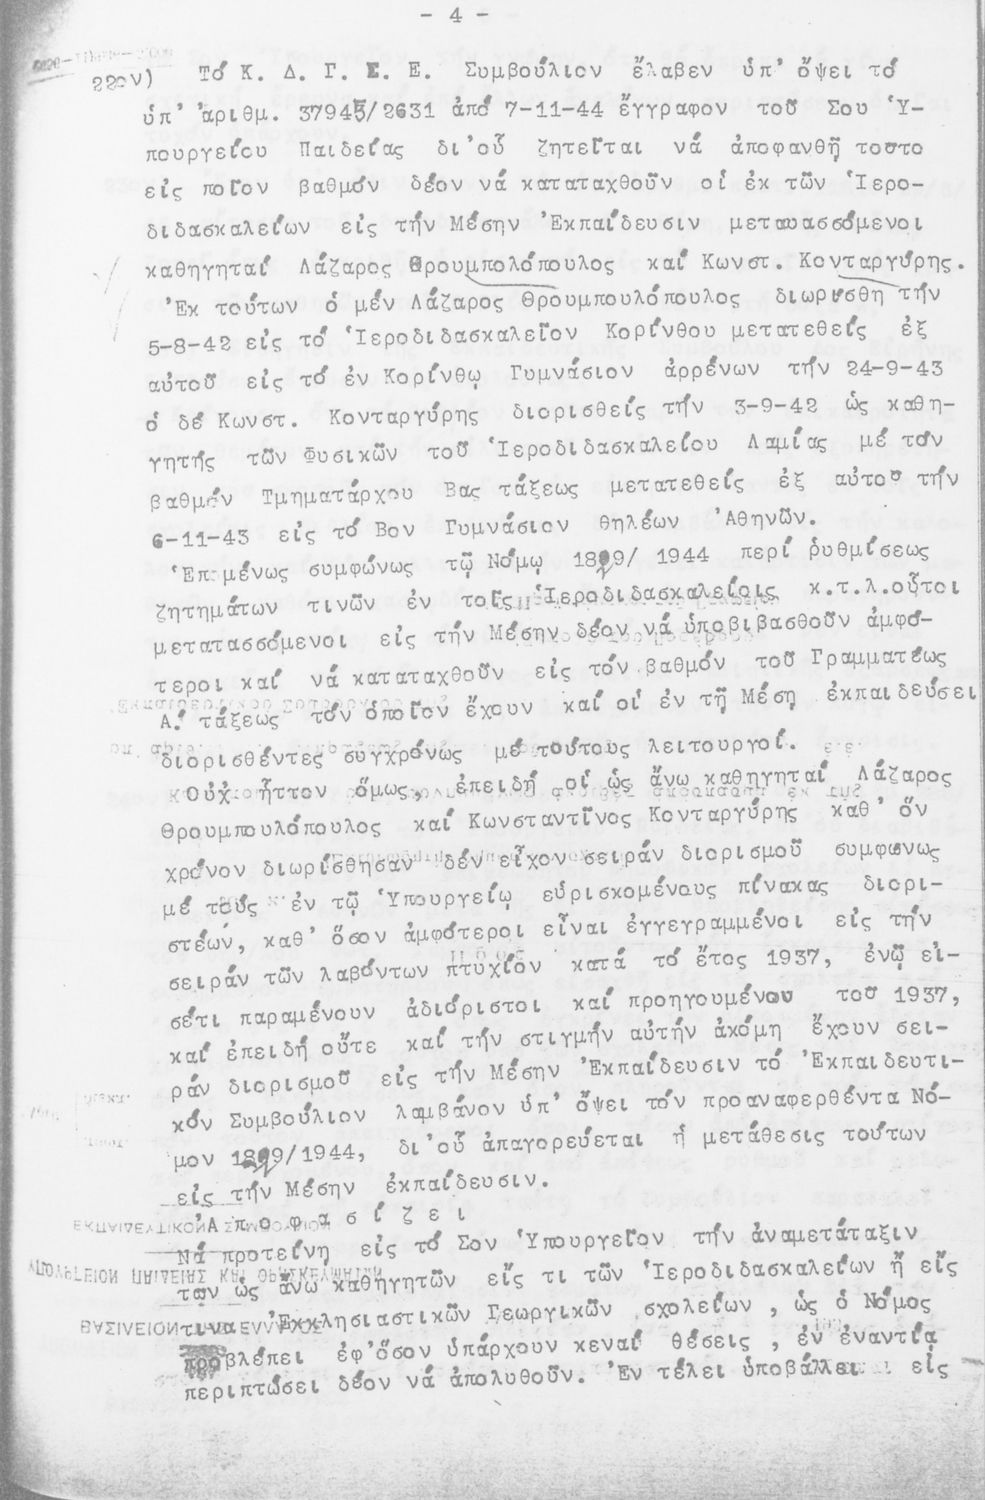 - 4 -
22ον) Τό Κ. Δ. Γ. Σ. Ε. Συμβούλιον ἔλαβεν ὑπ' ὄψει τό
ὑπ' ἀριθμ. 37945/2631 ἀπό 7-11-44 ἔγγραφον τοῦ Σου Ὑ-
πουργείου Παιδείας δι'οὗ ζητεῖται νά ἀποφανθῇ τοστο
εἰς ποῖον βαθμόν δέον νά καταταχθοῦν οἱ ἐκ τῶν Ἱερο-
διδασκαλείων εἰς τήν Μέσην Ἐκπαίδευσιν μετατασσόμενοι
καθηγηταί Λάζαρος Θρουμπολόπουλος καί Κωνστ. Κονταργύρης.
Ἐκ τούτων ὁ μέν Λάζαρος Θρουμπουλόπουλος διωρίσθη τήν
5-8-42 εἰς τό Ἱεροδιδασκαλεῖον Κορίνθου μετατεθείς ἐξ
αὐτοῦ εἰς τό ἐν Κορίνθῳ Γυμνάσιον ἀρρένων τήν 24-9-43
ὁ δέ Κωνστ. Κονταργύρης διορισθείς τήν 3-9-42 ὡς καθη-
γητής τῶν Φυσικῶν τοῦ Ἱεροδιδασκαλείου Λαμίας μέ τόν
βαθμόν Τμηματάρχου Βας τάξεως μετατεθείς ἐξ αὐτοῦ τήν
6-11-43 εἰς τό Βον Γυμνάσιον θηλέων Ἀθηνῶν.
Ἑπομένως συμφώνως τῷ Νόμῳ 1899/ 1944 περί ῥυθμίσεως
ζητημάτων τινῶν ἐν τοῖς Ἱεροδιδασκαλείοις κ.τ.λ.οὗτοι
μετατασσόμενοι εἰς τήν Μέσην δέον νά ὑποβιβασθοῦν ἀμφό-
τεροι καί νά καταταχθοῦν εἰς τόν βαθμόν τοῦ Γραμματέως
Α! τάξεως τόν ὁποῖον ἔχουν καί οἱ ἐν τῇ Μέσῃ ἐκπαιδεύσει
διορισθέντες συγχρόνως μέ τούτους λειτουργοί.
Οὐχ ἧττον ὅμως, ἐπειδή οἱ ὡς ἄνω καθηγηταί Λάζαρος
Θρουμπουλόπουλος καί Κωνσταντῖνος Κονταργύρης καθ' ὅν
χρόνον διωρίσθησαν δέν εἶχον σειράν διορισμοῦ συμφωνως
μέ τούς ἐν τῷ Ὑπουργείῳ εὑρισκομένους πίνακας διορι-
στέων, καθ' ὅσον ἀμφότεροι εἶναι ἐγγεγραμμένοι εἰς τήν
σειράν τῶν λαβόντων πτυχίον κατά τό ἔτος 1937, ἐνῷ εἰ-
σέτι παραμένουν ἀδιόριστοι καί προηγουμένου τοῦ 1937,
καί ἐπειδή οὔτε καί τήν στιγμήν αὐτήν ἀκόμη ἔχουν σει-
ράν διορισμοῦ εἰς τήν Μέσην Ἐκπαίδευσιν τό Ἐκπαιδευτι-
κόν Συμβούλιον λαμβάνον ὑπ' ὄψει τόν προαναφερθέντα Νό-
μον 1899/1944, δι'οὗ ἀπαγορεύεται ἡ μετάθεσις τούτων
εἰς τήν Μέσην ἐκπαίδευσιν.
Ἀ π ο φ α σ ί ζ ε ι
Νά προτείνῃ εἰς τό Σον Ὑπουργεῖον τήν ἀναμετάταξιν
των ὡς ἄνω καθηγητῶν εἴς τι τῶν Ἱεροδιδασκαλείων ἤ εἴς
τινα Ἐκκλησιαστικῶν Γεωργικῶν σχολείων , ὡς ὁ Νόμος
προβλέπει ἐφ'ὅσον ὑπάρχουν κεναί θέσεις , ἐν ἐναντίᾳ
περιπτώσει δέον νά ἀπολυθοῦν. Ἐν τέλει ὑποβάλλει εἰς